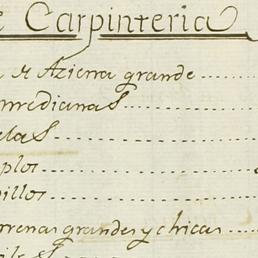 e Carpinteria
e Azierra grande
medianas
elas
plos
pillos
rrenas grandes y chicas